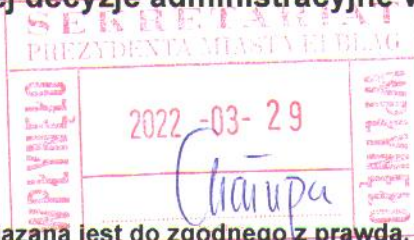 ej decyzje administracyjne w
SEKRETARIAT
PREZYDENTA MIASTA ELBLĄG
WPŁYNĘŁO
2022 -03- 29
azana jest do zgodnego z prawdą